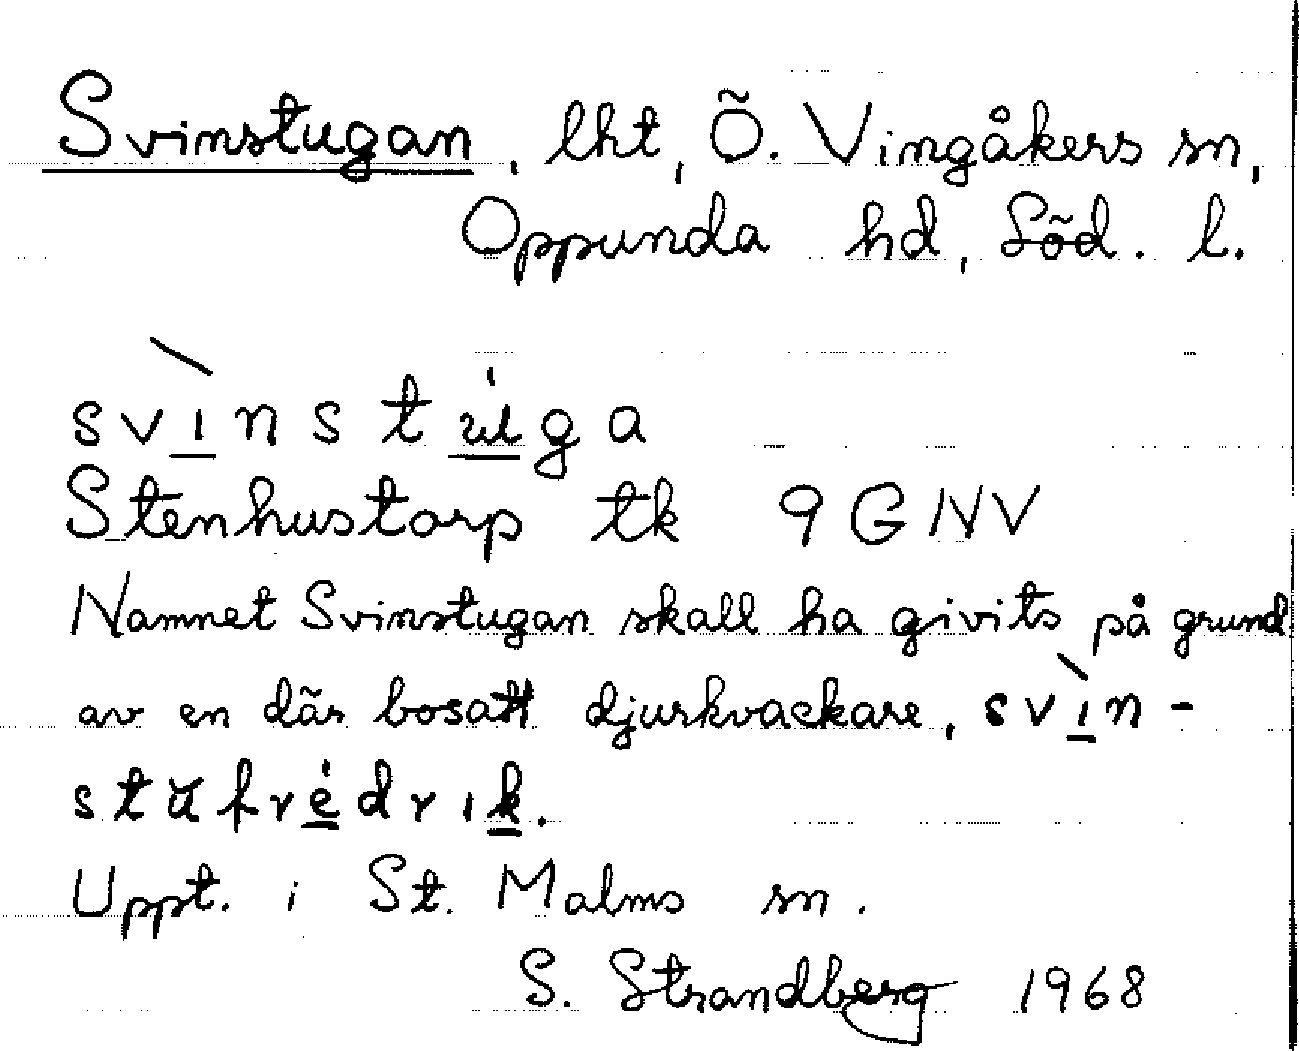 Svinstugan, lht, Ö. Vingåkers sn,
Oppunda hd, Söd. l.
svì̱nstu̱ga
Stenhustorp tk 9 G NV
Namnet Svinstugan skall ha givits på grund
av en där bosatt djurkvackare, svì̱n-
stŭfrė̱drıḵ.
Uppt. i St. Malms sn.
S. Strandberg 1968